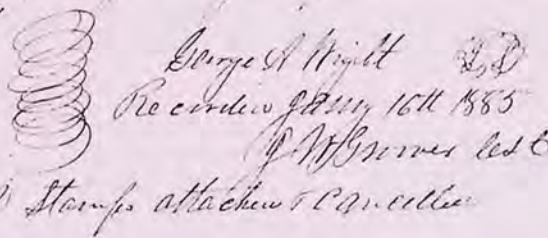 George A Wright LS
Recorded Jany 16th 1885
J W Grover
Stamps attached & Cancelled